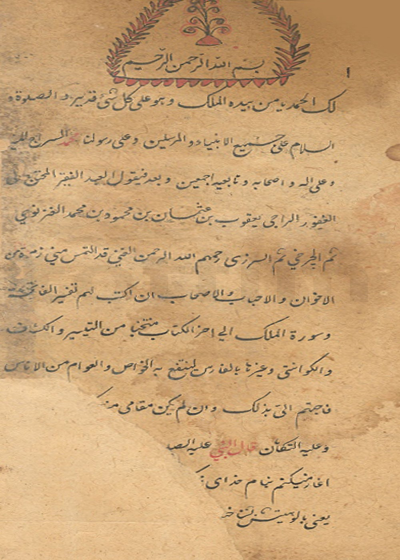 بسم الله الرحمن الرحيم
١
لك الحمد يا من بيده الملك وهو على كل شئ قدير والصلوة و
السلام على جميع الانبياء والمرسلين وعلى رسولنا محمد
وعلى اله واصحابه وتابعيه اجمعين وبعد فيقول العبد الفقير المحتاج
الغفور الراجى يعقوب بن عثمان بن محمود بن محمد الغزنوى
ثم الچرخى ثم السررزى رحمهم الله الرحمن قد التمس منى زمرة من
الاخوان والاحباب والاصحاب ان اكتب لهم تفسير الفاتحة
وسورة الملك الى اخر الكتاب منتخبا من التيسير والكشاف
والكواشى وغيرها بالفارس لينتفع به الخواص والعوام من الاناس
فاجبتهم الى ذلك وان لم يكن مقامى
وعليه التكلان قال النبى عليه
اغاز ميكنم بنام خداى
يعنى